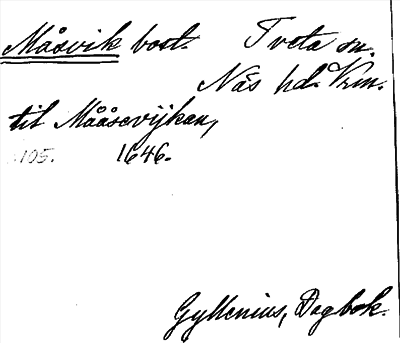 Måsvik bost. Tveta sn.
Näs hd. Vrm.
til Mååsevijkan,
105. 1646.
Gyllenius, Dagbok.